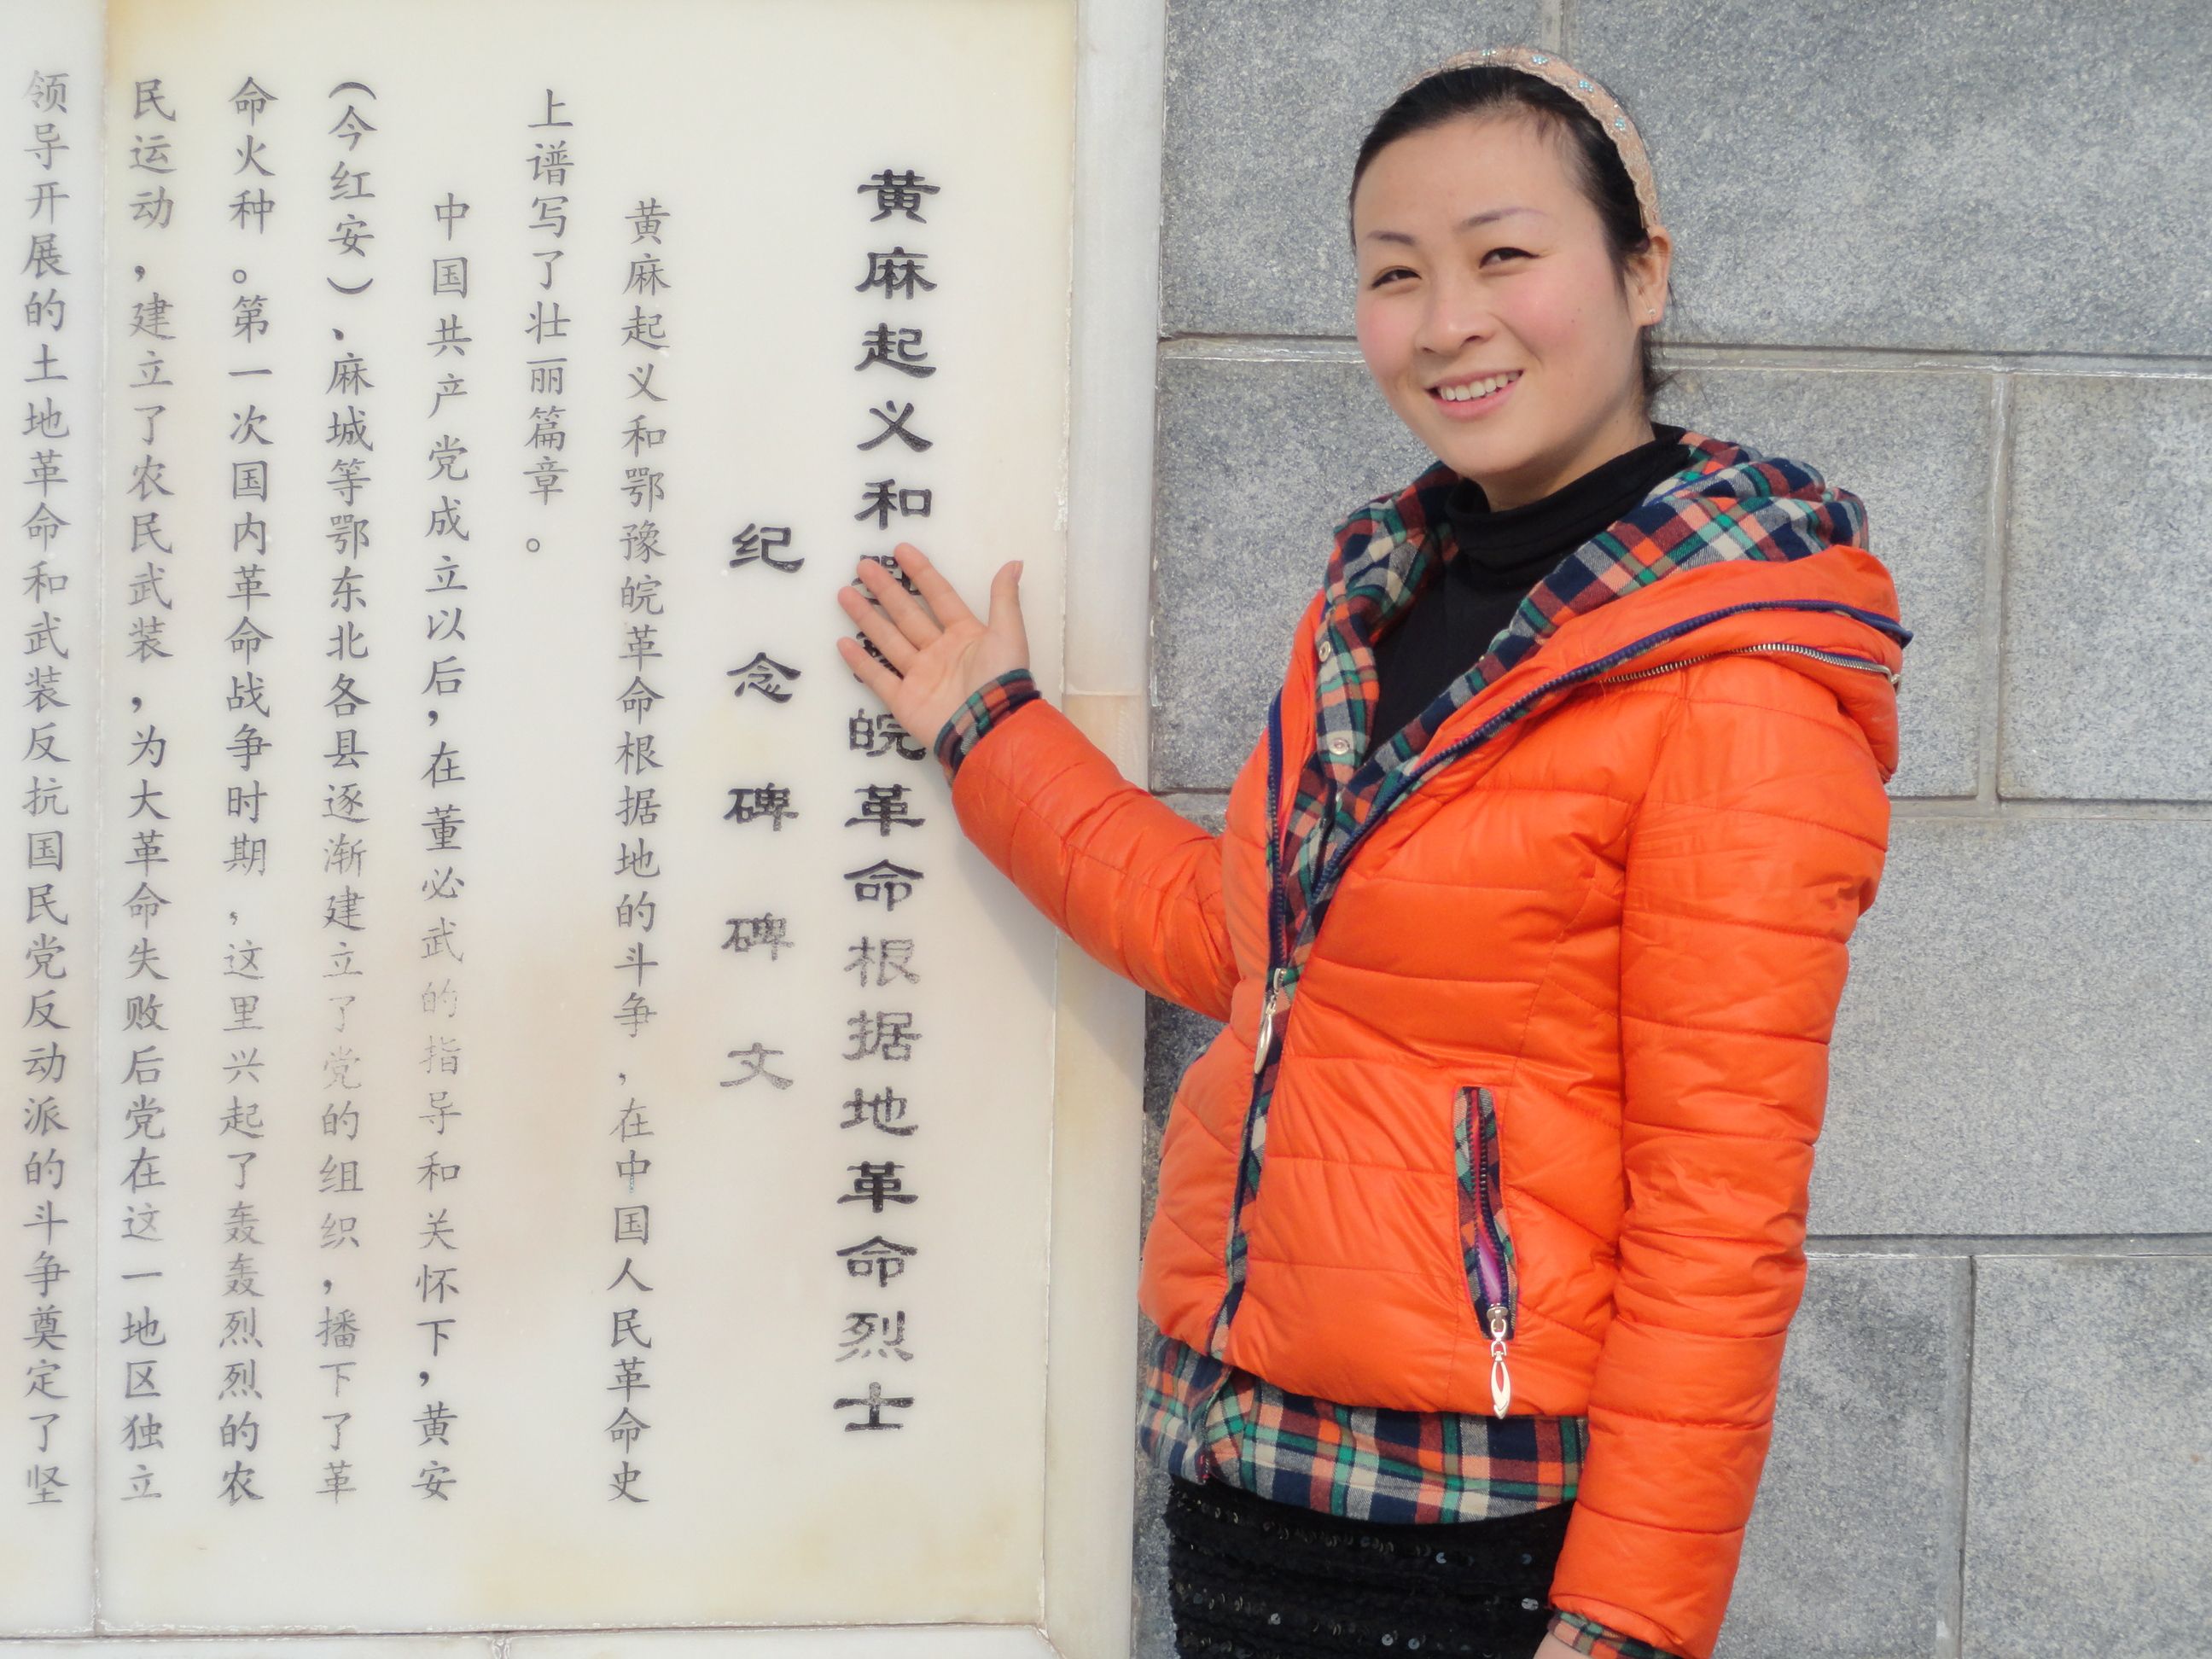 黄麻起义和皖革命根据地革命烈士
纪念碑碑文
黄麻起义和鄂豫皖革命根据地的斗争，在中国人民革命史
上谱写了壮丽篇章。
中国共产党成立以后，在董必武的指导和关怀下，黄安
（今红安）、麻城等鄂东北各县逐渐建立了党的组织，播下了革
命火种。第一次国内革命战争时期，这里兴起了轰轰烈烈的农
民运动，建立了农民武装，为大革命失败后党在这一地区独立
领导开展的土地革命和武装反抗国民党反动派的斗争奠定了坚